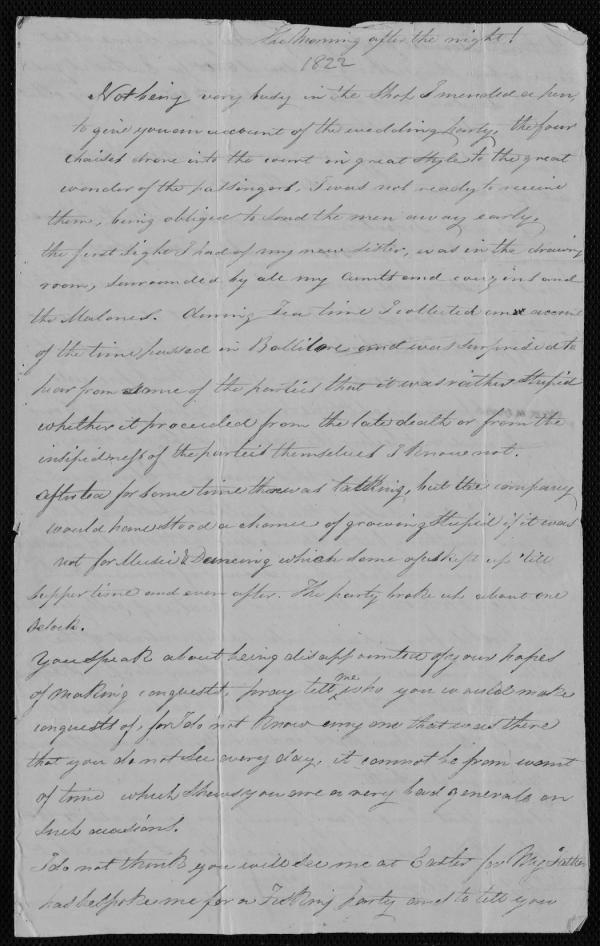 The Morning after the night!
1822
Nothing very busy in the Shop I mended a pen,
to give you an account of the wedding party, the four
chaises drove into the court in great style to the great
wonder of the passingers, I was not ready to receive
them, being obliged to send the men away early,
the first sight I had of my new sister, was in the drawing
room, surrounded by all my aunts and cousins and
the Malones. during Tea time I collected an account
of the time passed in and was surprised to
hear from some of the parties that it was rather stupid
whether it proceeded from the late death or from the
insipidness of the parties themselves I know not.
after tea for some time there was talking, but the company
would have stood a chance of growing stupid if it was
not for Music & Dancing which some of us kept up till
supper time and even after. The party broke up about one
Oclock.
You speak about being disappointed of your hopes
of making conquests, pray tell me who you would make
conquests of, for I do not know any one that was there
that you do not see every day, it cannot be from want
of time which shews you are a very bad general on
such occasions.
I do not think you will see me at Easter for My Father
has bespoke me for a party and to tell you